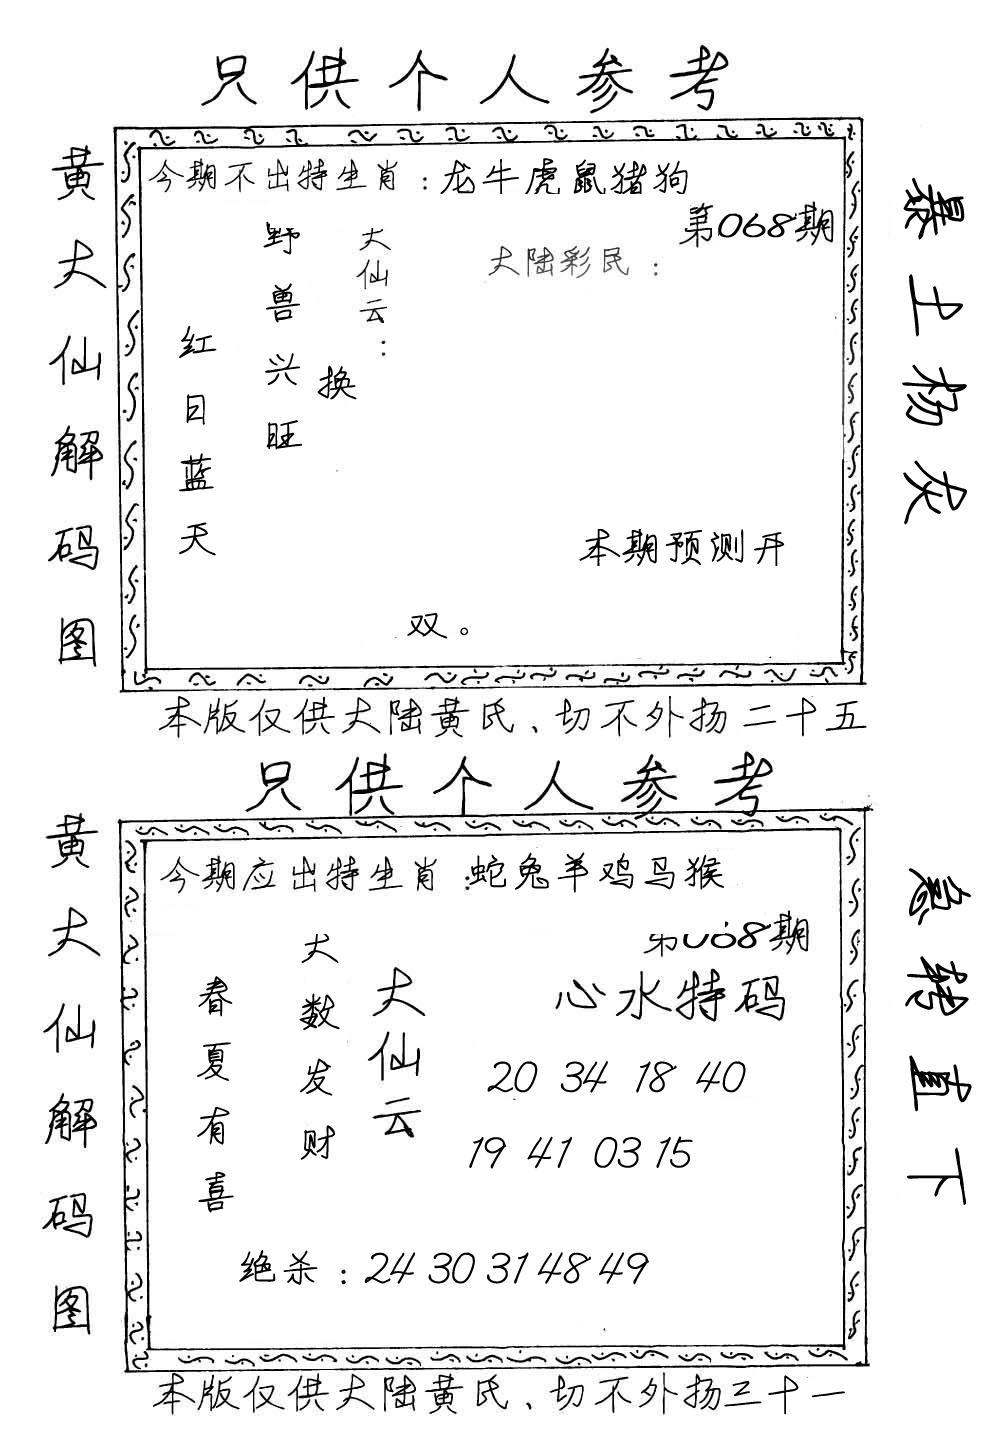 只供个人参考
黄大仙解码图
今期不出特生肖：龙牛虎鼠猪狗
第068期
大陆彩民：
大仙云：
换
野兽兴旺
红日蓝天
本期预测开
双。
暴土杨灰
本版仅供大陆黄氏、切不外扬二十五
只供个人参考
黄大仙解码图
今期应出特生肖：蛇兔羊鸡马猴
第068期
心水特码
大仙云
大数发财
春夏有喜
20 34 18 40
19 41 03 15
绝杀：24 30 31 48 49
急转直下
本版仅供大陆黄氏、切不外扬三十一